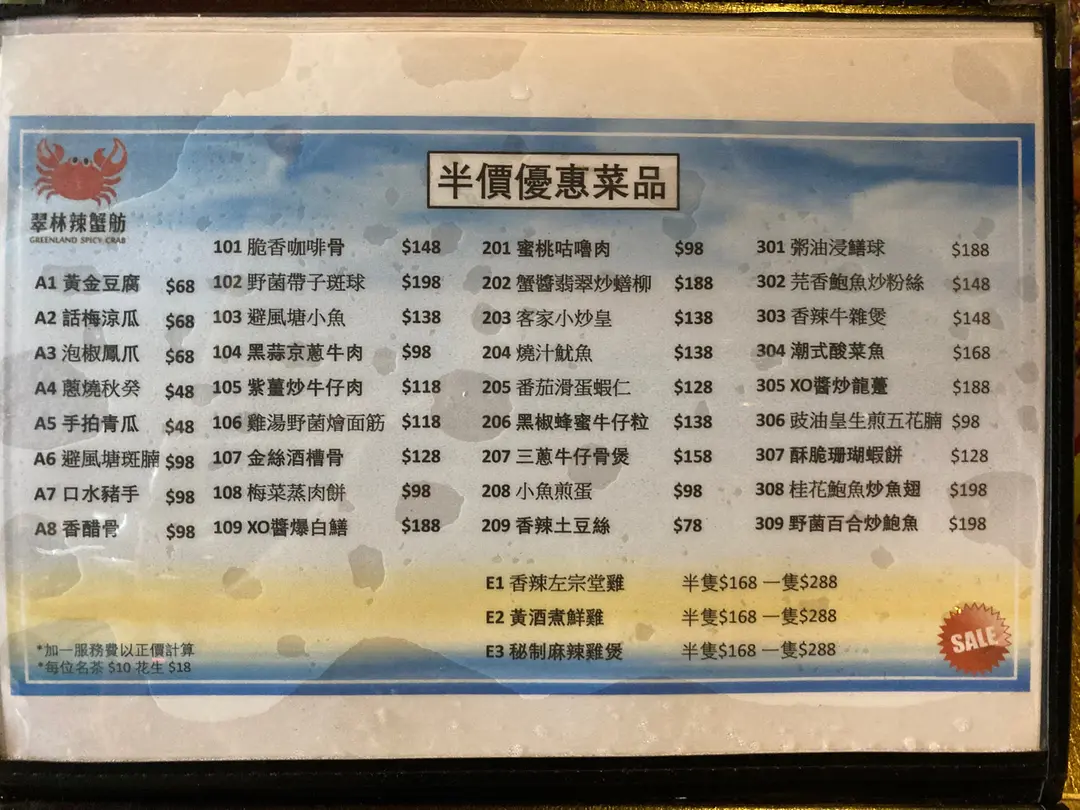 半價優惠菜品
翠林辣蟹舫
GREENLAND SPICY CRAB
A1 黃金豆腐 $68
A2 話梅涼瓜 $68
A3 泡椒鳳爪 $68
A4 蔥燒秋葵 $48
A5 手拍青瓜 $48
A6 避風塘斑腩 $98
A7 口水豬手 $98
A8 香醋骨 $98
101 脆香咖啡骨 $148
102 野菌帶子斑球 $198
103 避風塘小魚 $138
104 黑蒜京蔥牛肉 $98
105 紫薑炒牛仔肉 $118
106 雞湯野菌燴面筋 $118
107 金絲酒槽骨 $128
108 梅菜蒸肉餅 $98
109 XO醬爆白鱔 $188
201 蜜桃咕嚕肉 $98
202 蟹醬翡翠炒鱔柳 $188
203 客家小炒皇 $138
204 燒汁魷魚 $138
205 番茄滑蛋蝦仁 $128
206 黑椒蜂蜜牛仔粒 $138
207 三蔥牛仔骨煲 $158
208 小魚煎蛋 $98
209 香辣土豆絲 $78
301 粥油浸鱔球 $188
302 芫香鮑魚炒粉絲 $148
303 香辣牛雜煲 $148
304 潮式酸菜魚 $168
305 XO醬炒龍躉 $188
306 豉油皇生煎五花腩 $98
307 酥脆珊瑚蝦餅 $128
308 桂花鮑魚炒魚翅 $198
309 野菌百合炒鮑魚 $198
E1 香辣左宗堂雞 半隻$168 一隻$288
E2 黃酒煮鮮雞 半隻$168 一隻$288
E3 秘制麻辣雞煲 半隻$168 一隻$288
*加一服務費以正價計算
*每位名茶 $10 花生 $18
SALE